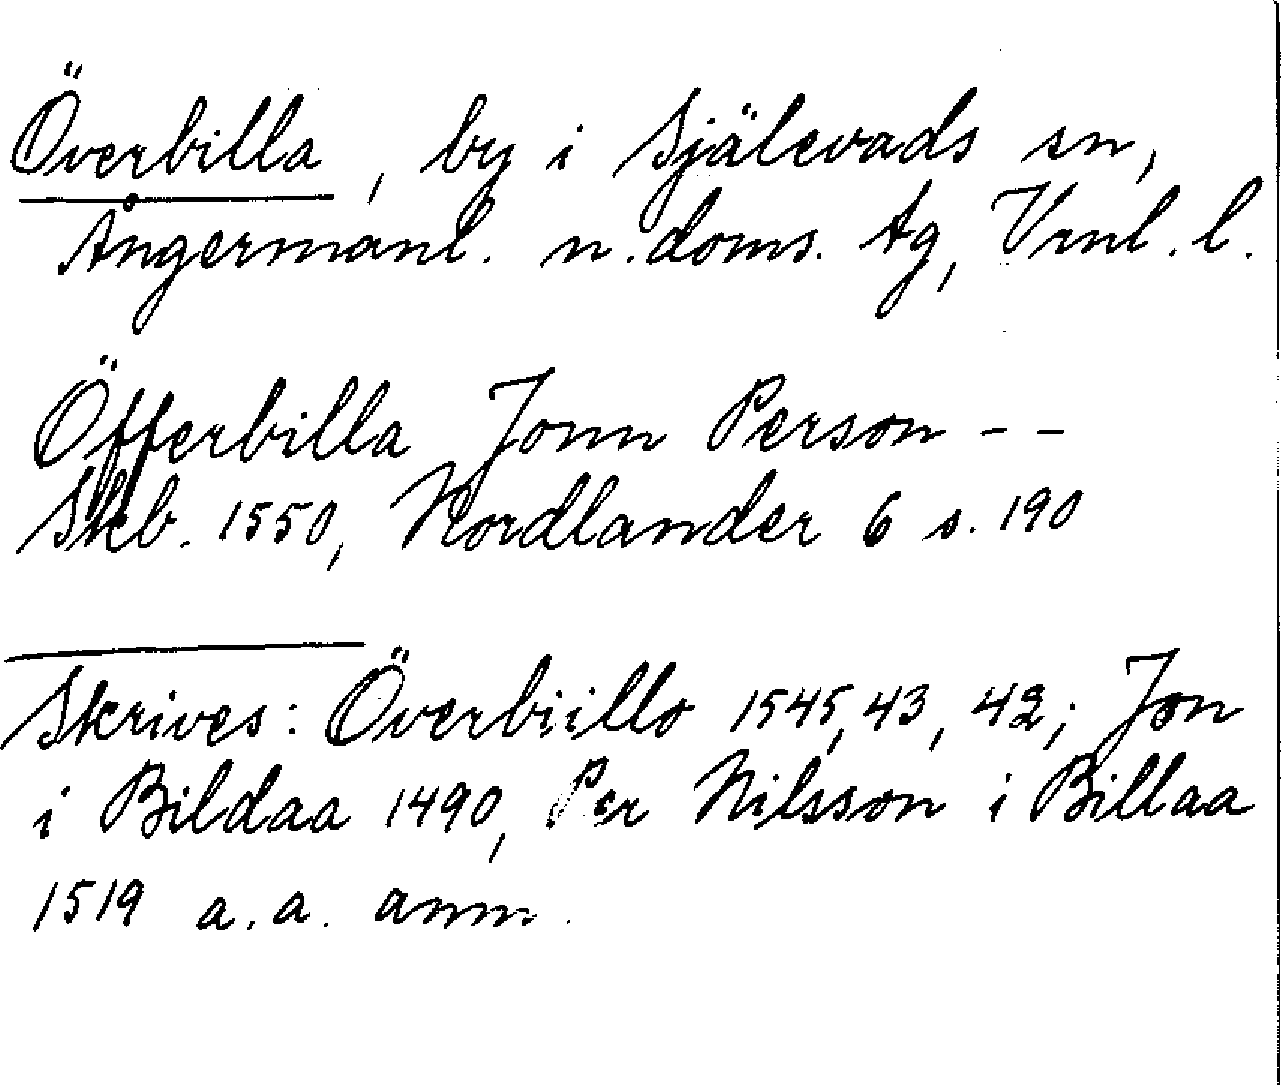 Överbilla, by i Själevads sn,
Ångermanl. n. doms. tg, Vrnl. l.
Öfferbilla Jonn Person - -
Skb. 1550, Nordlander 6 s. 190
Skrives: Överbiillo 1545, 43, 42; Jon
i Bildaa 1490, Per Nilsson i Billaa
1519 a. a. anm.